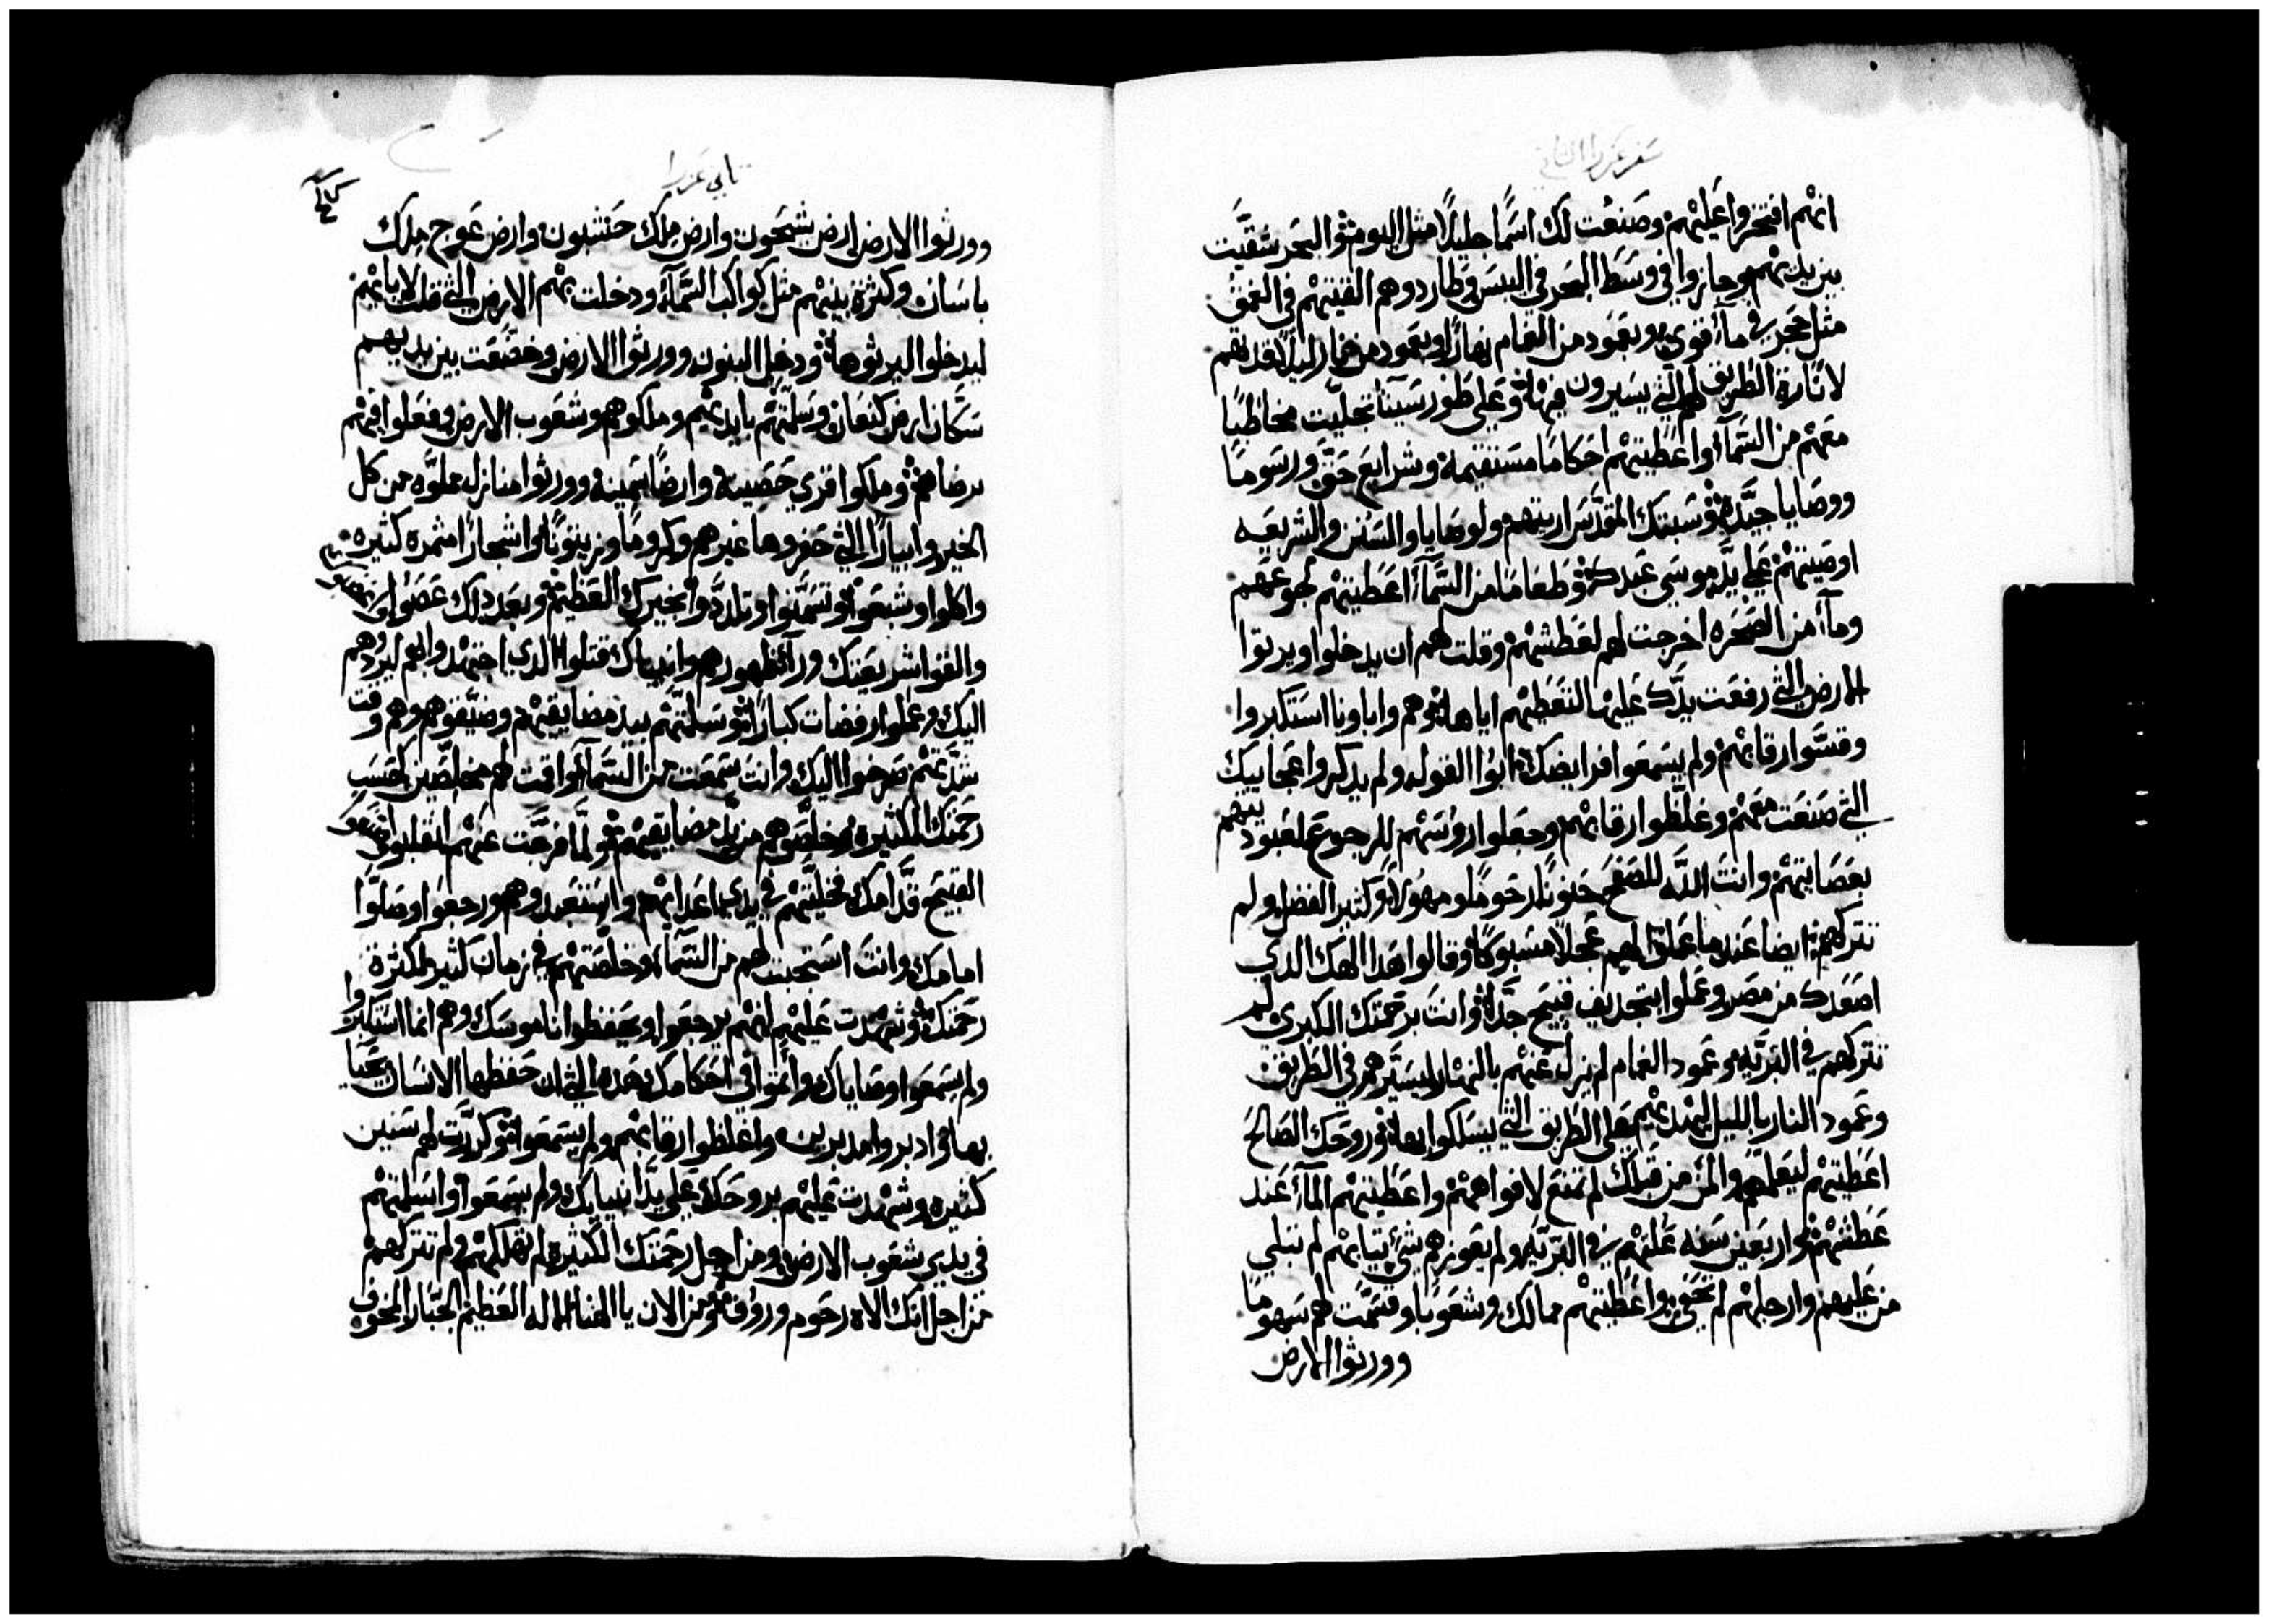 سفر عزرا الثاني
انهم افتخروا عليهم وصنعت لك اسمًا جليلًا مثل اليوم والبحر شقيت
بين يديهم وجازوا في وسط البحر في اليبس وطاردوهم القيتهم في العمق
مثل حجر في مآء قوي وبعمود من الغمام نهارًا وبعمود من نار ليلًا تقديهم
لانارة الطريق لهم التي يسيرون فيها وعلى طور سينا تجليت مخاطبًا
معهم من السمآء واعطيتهم احكامًا مستقيمة وشرايع حق ورسومًا
ووصايا جيّدة وسبتك المقدس اريتهم ولوصايا والسنن والشريعه
اوصيتهم على يد موسى عبدك وطعامًا من السمآء اعطيتهم لجوعهم
ومآء من الصخره اخرجت لهم لعطشهم وقلت لهم ان يدخلوا ويرثوا
الارض التي رفعت يدك عليها لتعطيهم اياها وهم واباونا استكبروا
وقسّوا رقابهم ولم يسمعوا فرايضك ابوا القول ولم يدكروا عجايبك
التي صنعت معهم وغلّظوا رقابهم وجعلوا روسهم للرجوع لعبوديتهم
بعصايتهم وانت اللّه للصفح حنونًا رحومًا ومهولًا وكثير الفضل ولم
تتركهم ايضا عندما عملوا لهم عجلًا مسبوكًا وقالوا هدا الهك الدي
اصعدك من مصر وعملوا بتجديف قبيح جدًّا وانت برحمتك الكبرى لم
تتركهم في البرّيه وعمود الغمام لم يزل عنهم بالنهار ليسيّرهم في الطريق
وعمود النار بالليل ليهديهم على الطريق التي يسلكوا بها وروحك الصالح
اعطيتهم ليعلّمهم والمن من قبلك لم تمنع لافواههم واعطيتهم المآء عند
عطشهم واربعين سنه علتهم في البرّيه ولم يعوزهم شئ ثيابهم لم تبلي
من عليهم وارجلهم لم تحفى واعطيتهم ممالك وشعوبًا وقسّمت لهم سهومًا
وورثوا الارض
تاني عزرا
وورثوا الارض ارض شيحون وارض ملك حنشبون وارض عوج ملك
باسان وكثرة بنيهم مثل كواكب السّمآء ودخلت بهم الارض التي قلت لابايهم
ليدخلوا ليرثوها ودخل البنون وورثوا الارض وخضعت بين يديهم
سكّان ارض كنعان وسلمتهم بايديهم وملوكهم وشعوب الارض وفعلوا فيهم
برضاهم وملكوا قري حصينة وارضًا سمينة وورثوا منازل مملوّه من كل
الخير وابيارًا التي حفروها غيرهم وكرومًا وزيتونًا واشجارًا مثمرة كثيره
واكلوا وشبعوا وتسمّنوا وتلدّدوا بخيرك العظيم وبعد دلك عصوا
والقوا شريعتك ورآء ظهورهم وانبياك قتلوا الدي اجتهدوا بهم ليردّوهم
اليك وعملوا رفضات كبارًا وسلمتهم بيد مضايقيهم وضيّقوهم وهم وقت
شدّتهم صرخوا اليك وانت سمعت من السمآء واقت لهم مخلصين لحسب
رحمتك الكثيره وخلّصوهم من يد مضايقيهم ولمّا فرّجت عنهم انقلبوا
القبيح قدّامك فخلّيتهم في يدي اعدايهم واستعبدوهم ورجعوا وصلّوا
امامك وانت استجبت لهم من السّمآء وخلّصتهم في زمان كثير لكثرة
رحمتك وشهدت عليهم انهم يرجعوا ويحفظوا ناموسك وهم انما استكبروا
ولم يسمعوا وصاياك واثموا في احكامك هده التي ان حفظها الانسان يحيا
بها وادبروا مدبرين واغلظوا رقابهم ولم يسمعوا وكررّت لهم سنين
كثيره وشهدت عليهم بروحك على يد انبياك ولم يسمعوا واسلمتهم
في يدي شعوب الارض ومن اجل رحمتك الكثيرة لم تهلكهم ولم تتركهم
من اجل انك الاه رحوم ورؤف ومن الان يا الهنا الاله العظيم الجبّار المخوف